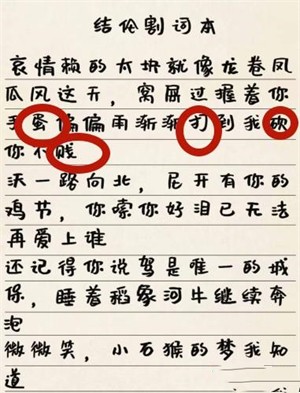 结伦割词本
哀情赖的太块就像龙卷风
瓜风这天，窝屎过握着你
手蛋偏偏雨渐渐打到我砍
你不贱
沃一路向北，尼开有你的
鸡节，你嗦你好泪已无法
再爱上谁
还记得你说驾是唯一的城
保，睡着稻象河牛继续奔
泡
微微笑，小石猴的梦我知
道